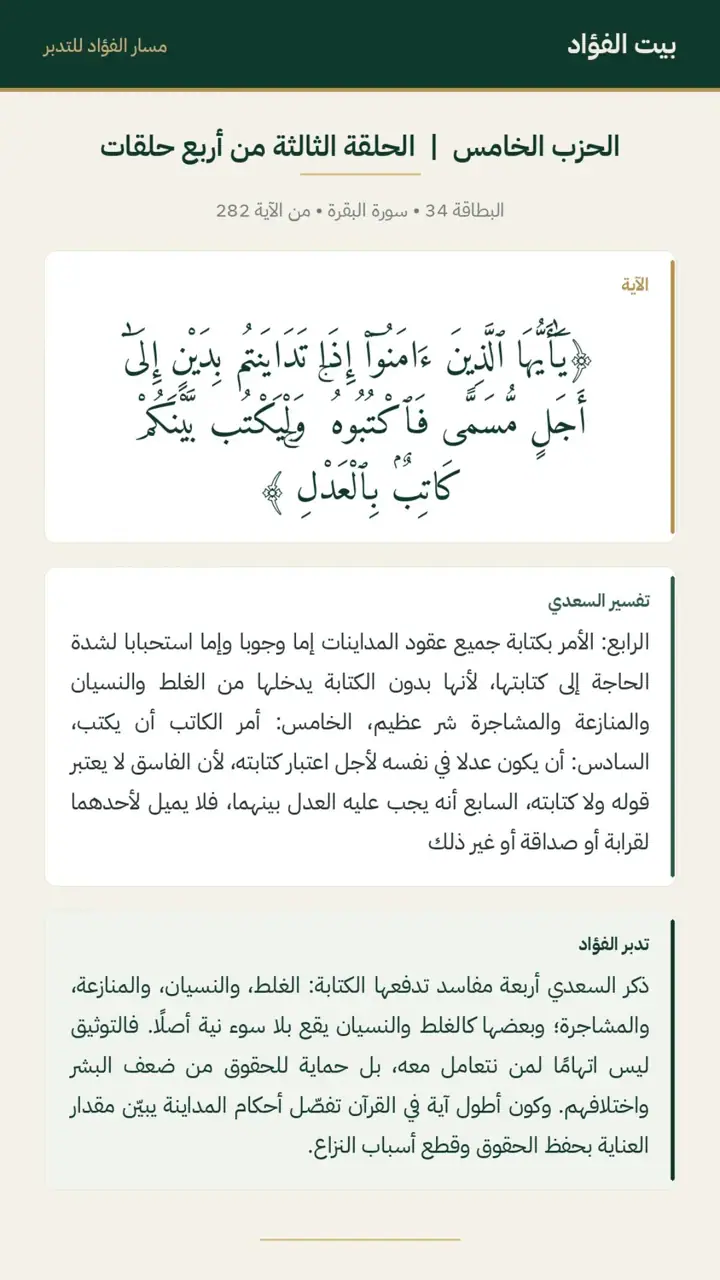 بيت الفؤاد
مسار الفؤاد للتدبر
الحزب الخامس | الحلقة الثالثة من أربع حلقات
البطاقة 34 • سورة البقرة • من الآية 282
الآية
﴿يَٰٓأَيُّهَا ٱلَّذِينَ ءَامَنُوٓاْ إِذَا تَدَايَنتُم بِدَيْنٍ إِلَىٰٓ
أَجَلٖ مُّسَمّٗى فَٱكْتُبُوهُۚ وَلْيَكْتُب بَّيْنَكُمْ
كَاتِبُۢ بِٱلْعَدْلِۚ ﴾
تفسير السعدي
الرابع: الأمر بكتابة جميع عقود المداينات إما وجوبا وإما استحبابا لشدة
الحاجة إلى كتابتها، لأنها بدون الكتابة يدخلها من الغلط والنسيان
والمنازعة والمشاجرة شر عظيم، الخامس: أمر الكاتب أن يكتب،
السادس: أن يكون عدلا في نفسه لأجل اعتبار كتابته، لأن الفاسق لا يعتبر
قوله ولا كتابته، السابع أنه يجب عليه العدل بينهما، فلا يميل لأحدهما
لقرابة أو صداقة أو غير ذلك
تدبر الفؤاد
ذكر السعدي أربعة مفاسد تدفعها الكتابة: الغلط، والنسيان، والمنازعة،
والمشاجرة؛ وبعضها كالغلط والنسيان يقع بلا سوء نية أصلًا. فالتوثيق
ليس اتهامًا لمن نتعامل معه، بل حماية للحقوق من ضعف البشر
واختلافهم. وكون أطول آية في القرآن تفصّل أحكام المداينة يبيّن مقدار
العناية بحفظ الحقوق وقطع أسباب النزاع.